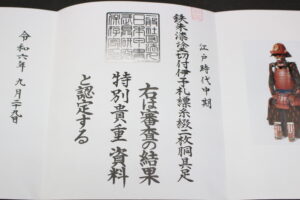 江戸時代中期
鉄朱漆塗切付伊予札縹糸綴二枚胴具足
右は審査の結果
特別貴重資料
と認定する
令和六年九月廿九日